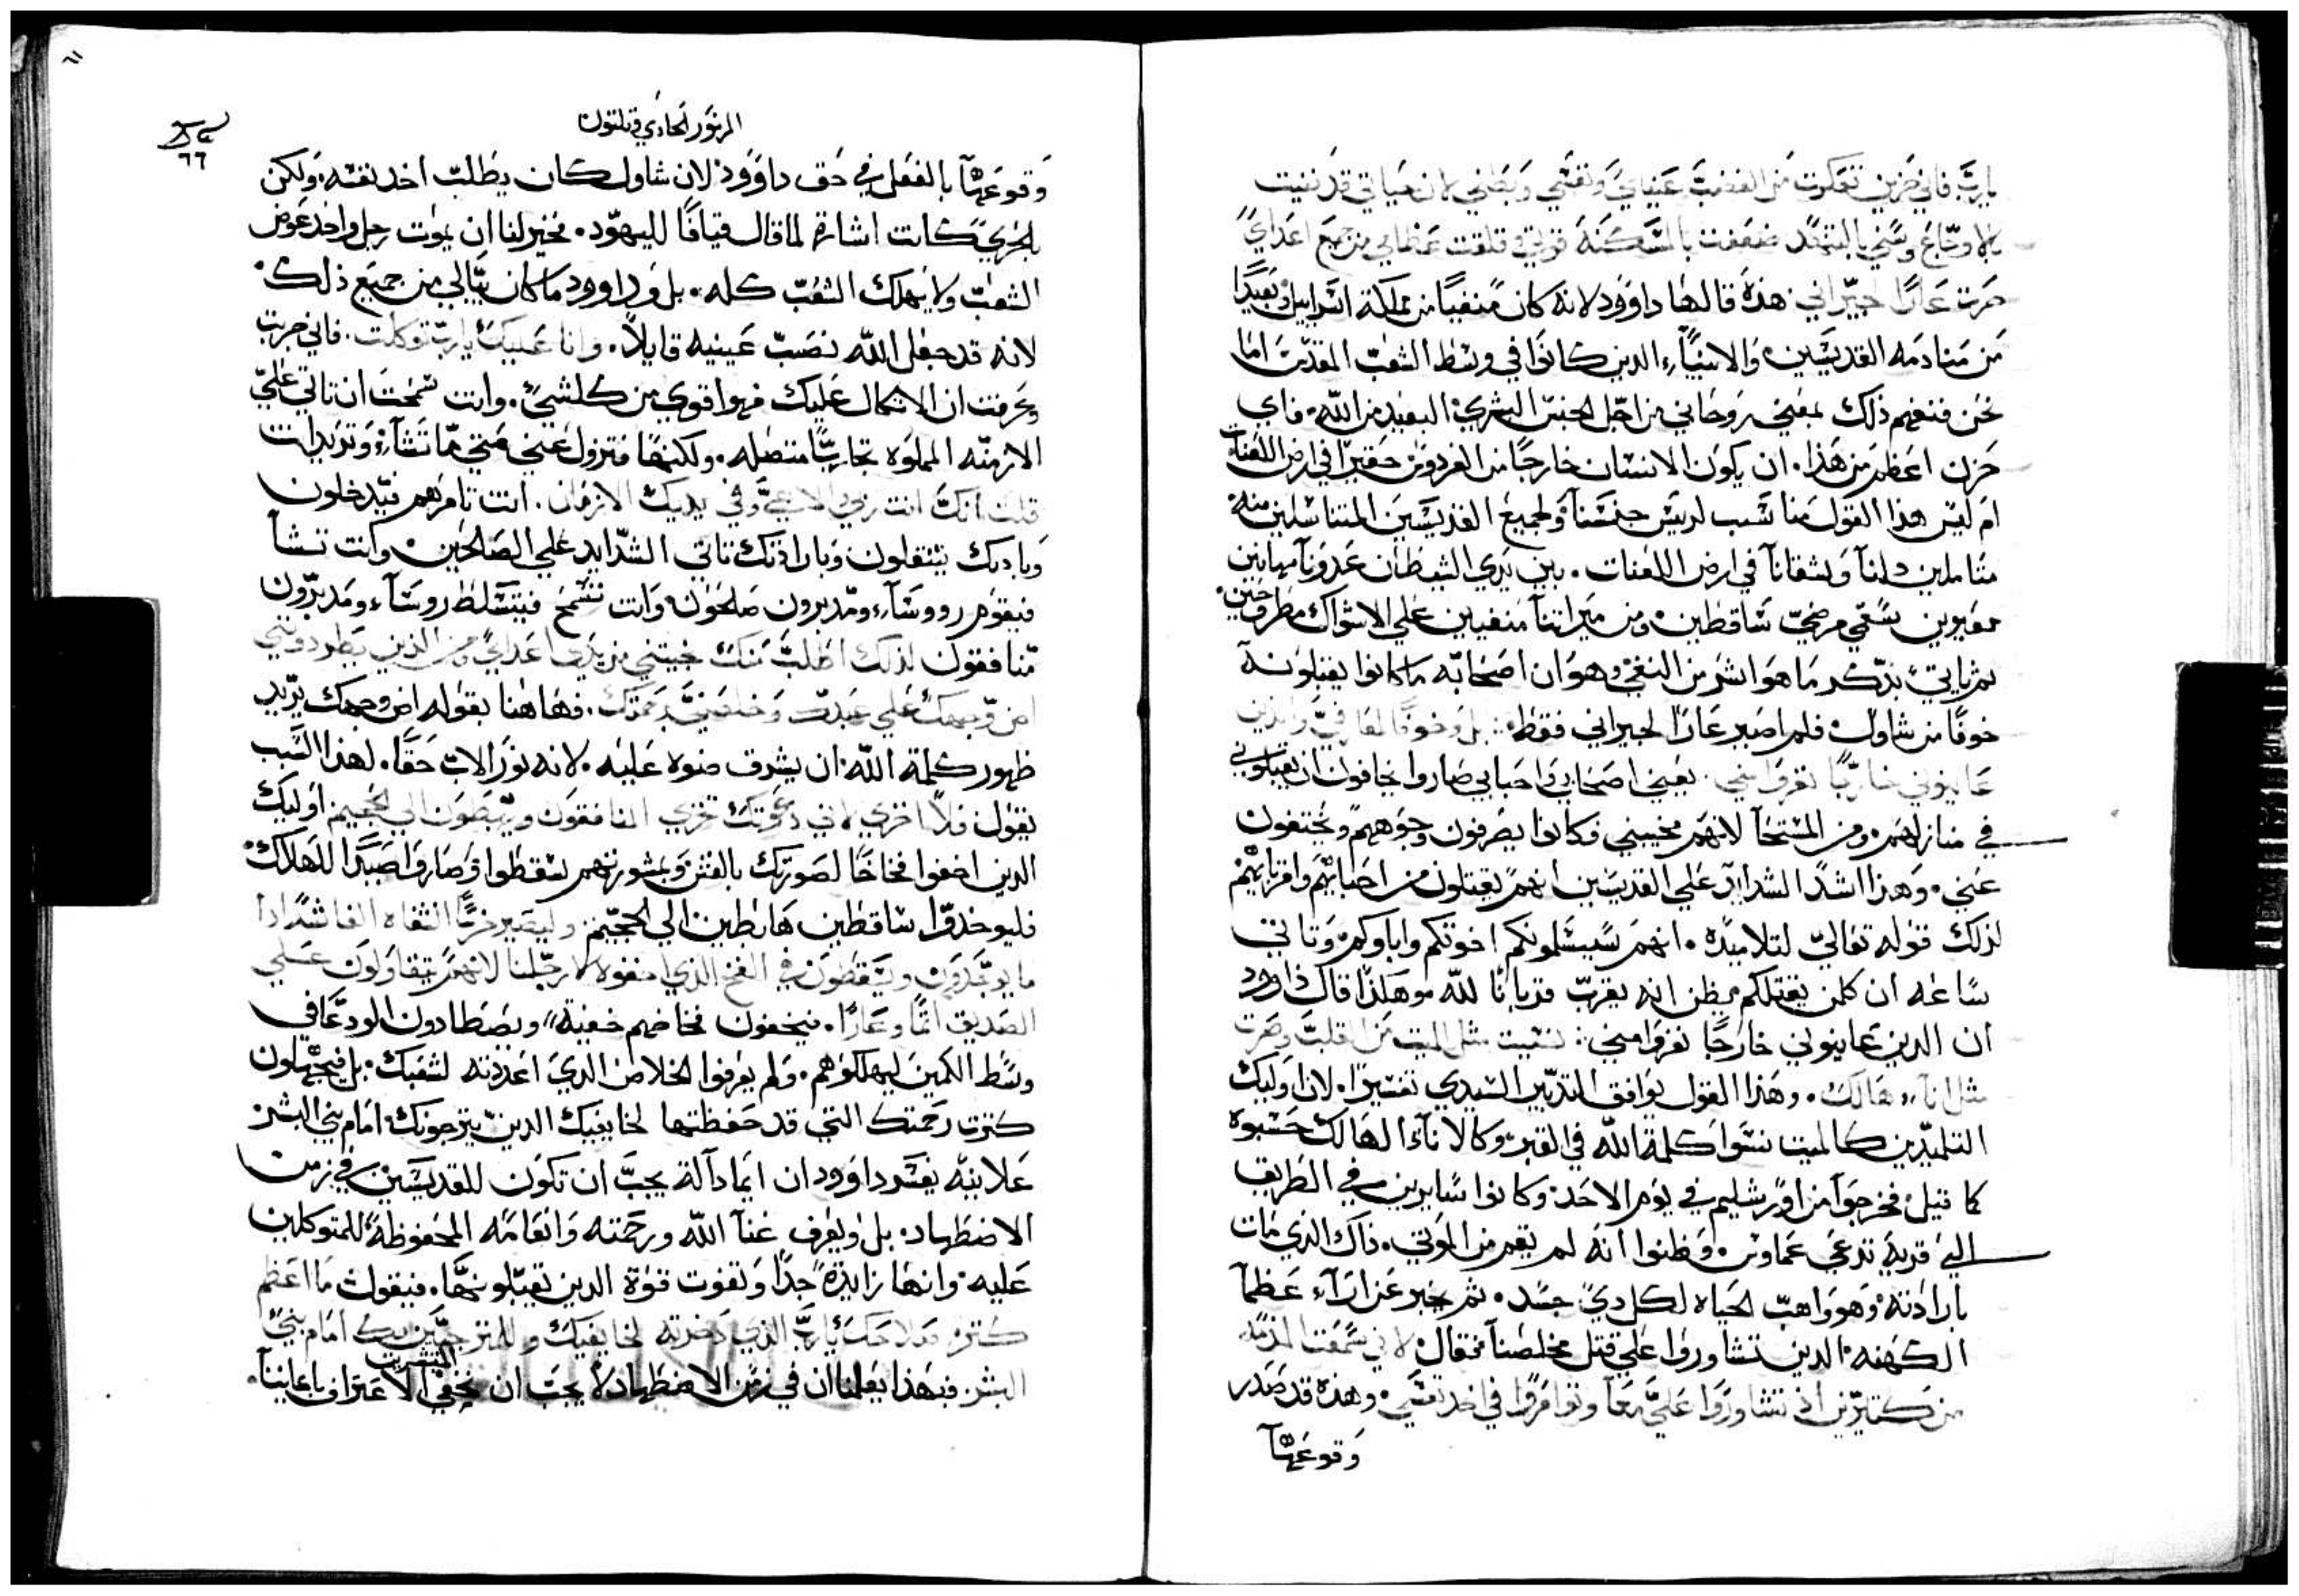 يارب فاني حزين تعكرت من الغضب عيناي ونفسي وبطني لان حياتي قد فنيت
بالاوجاع وسني بالتنهد ضعفت بالمسكنة قوتي وقلقت عظامي من جميع اعداي
صرت عارًا لجيراني هذه قالها داوود لانه كان منفيًا من مملكة اسراييل بعيدًا
من منادمه القديسين والانبيآء الدين كانوا في وسط الشعب المقدس اما
نحن فنفهم ذلك بمعني روحاني من اجل الجنس البشري البعيد من الله فاي
حزن اعظم من هذا ان يكون الانسان خارجًا من الفردوس حقيرًا في ارض اللعنات
ام ليس هذا القول مناسب لريس جنسنا ولجميع القديسين المتناسلين منه
متاملين دلنا وشقانا في ارض اللعنات بين يدي الشيطان عدونا مهانين
معيوبين ساقطين ومن ميراتنا منفيين علي الاشواك مطروحين
تم ياتي بذكر ما هو اشر من النفي وهو ان اصحابه ما كانوا يقبلونه
خوفًا من شاول فلم اصير عارًا لجيراني فقط بل وخوفًا لمعارفي والدين
عاينوني خارجًا نفروا مني يعني اصحابي واحبابي صاروا يخافون ان يقبلوني
في منازلهم ومن المستحا لانهم محبيني فكانوا يصرفون وجوههم ويختفون
عني وهذا اشد الشدايد علي القديسين انهم يقتلون من احبايهم واقربايهم
لذلك قوله تعالي لتلاميده انهم سيسلمونكم اخوتكم واباوكم وتاتي
ساعه ان كلمن يقتلكم يظن انه يقرب قربانًا لله وهكذا قال داوود
ان الدين عاينوني خارجًا نفروا مني نسيت مثل الميت من القلب وصرت
مثل انآء هالك وهذا القول يوافق التدبير السيدي تفسيرا لان اوليك
التلميذين كالميت نسوا كلمة الله في القبر وكالانآء الهالك حسبوه
كما قيل فخرجوا من اورشليم في يوم الاحد وكانوا سايرين في الطريق
الي قرية تدعي عماوس وظنوا انه لم يقم من الموتي ذاك الذي مات
بارادته وهو واهب الحياه لكل دي جسد تم يخبر عن ارآء عظما
الكهنه الدين تشاوروا علي قتل مخلصنا فقال لاني سمعت المذمه
من كتيرين اذ تشاوروا علي معا وتوامروا في اخد نفسي وهذه قد صدر
وقوعها
المزمور الحادي وتلتون
٦٦
وقوعها بالفعل في حق داوود لان شاول كان يطلب اخد نفسه ولكن
بالحري كانت اشارة لما قال قيافا لليهود فخير لنا ان يموت رجل واحد عوض
الشعب ولا يهلك الشعب كله بل وداوود ما كان يبالي من جميع ذلك
لانه قد جعل الله نصب عينيه قايلاً وانا عليك يارب توكلت فاني جربت
وعرفت ان الاتكال عليك فهو اقوي من كلشي وانت سمحت ان تاتي علي
الازمنه المملوه تجاربًا متصله ولكنها فتزول عني متي ما تشآء وتريد انت
قلت انك انت ربي الاهي وفي يديك الازمان انت تامرهم فيدخلون
وبادنك ينتقلون وبارادتك تاتي الشدايد علي الصالحين وانت تشا
فيقوم رووسآء ومدبرون صالحون وانت تسمح فيتسلط روسآء ومدبرون
منافقون لذلك اطلب منك نجيني من يدي اعداي ومن الذين يطردونني
اض وجهك علي عبدك وخلصني برحمتك فهاهنا بقوله اض وجهك يريد
ظهور كلمة الله ان يشرق ضوه عليه لانه نور الاب حقًا لهذا السبب
يقول فلا اخزي لاني دعوتك تخزي المنافقون ويهبطون الي الجحيم اوليك
الدين اخفوا فخاخًا لصورتك بالغش وبمشورتهم سقطوا وصاروا صيدًا للهلاك
فليوخدوا ساقطين هابطين الي الجحيم وليصير خرسًا الشفاه الغاشه اذا
ما يوخدون ويسقطون في الفخ الذي اخفوه لارجلنا لانهم يتقاولون علي
الصديق اتمًا وعارًا فيخفون فخاخهم خفية ويصطادون الودعا في
وسط الكمين ليهلكوهم ولم يعرفوا الخلاص الدي اعددته لشعبك بل فيجهلون
كترت رحمتك التي قد حفظتها لخايفيك الدين يترجونك امام بني البشر
علانية يفسر داوود ان ايما دآلة يجب ان تكون للقديسين في زمن
الاضطهاد بل ويعرف غنآ الله ورحمته وانعامه المحفوظة للمتوكلين
عليه وانها زايدة جدًا وتفوت قوة الدين تقبلونها فيقول ما اعظم
كترة صلاحك يارب الذي دخرته لخايفيك وللمترجيين بك امام بني
البشر فبهذا يعلمنا ان في زمن الاضطهاد لا يجب ان نخفي الاعتراف بايماننا